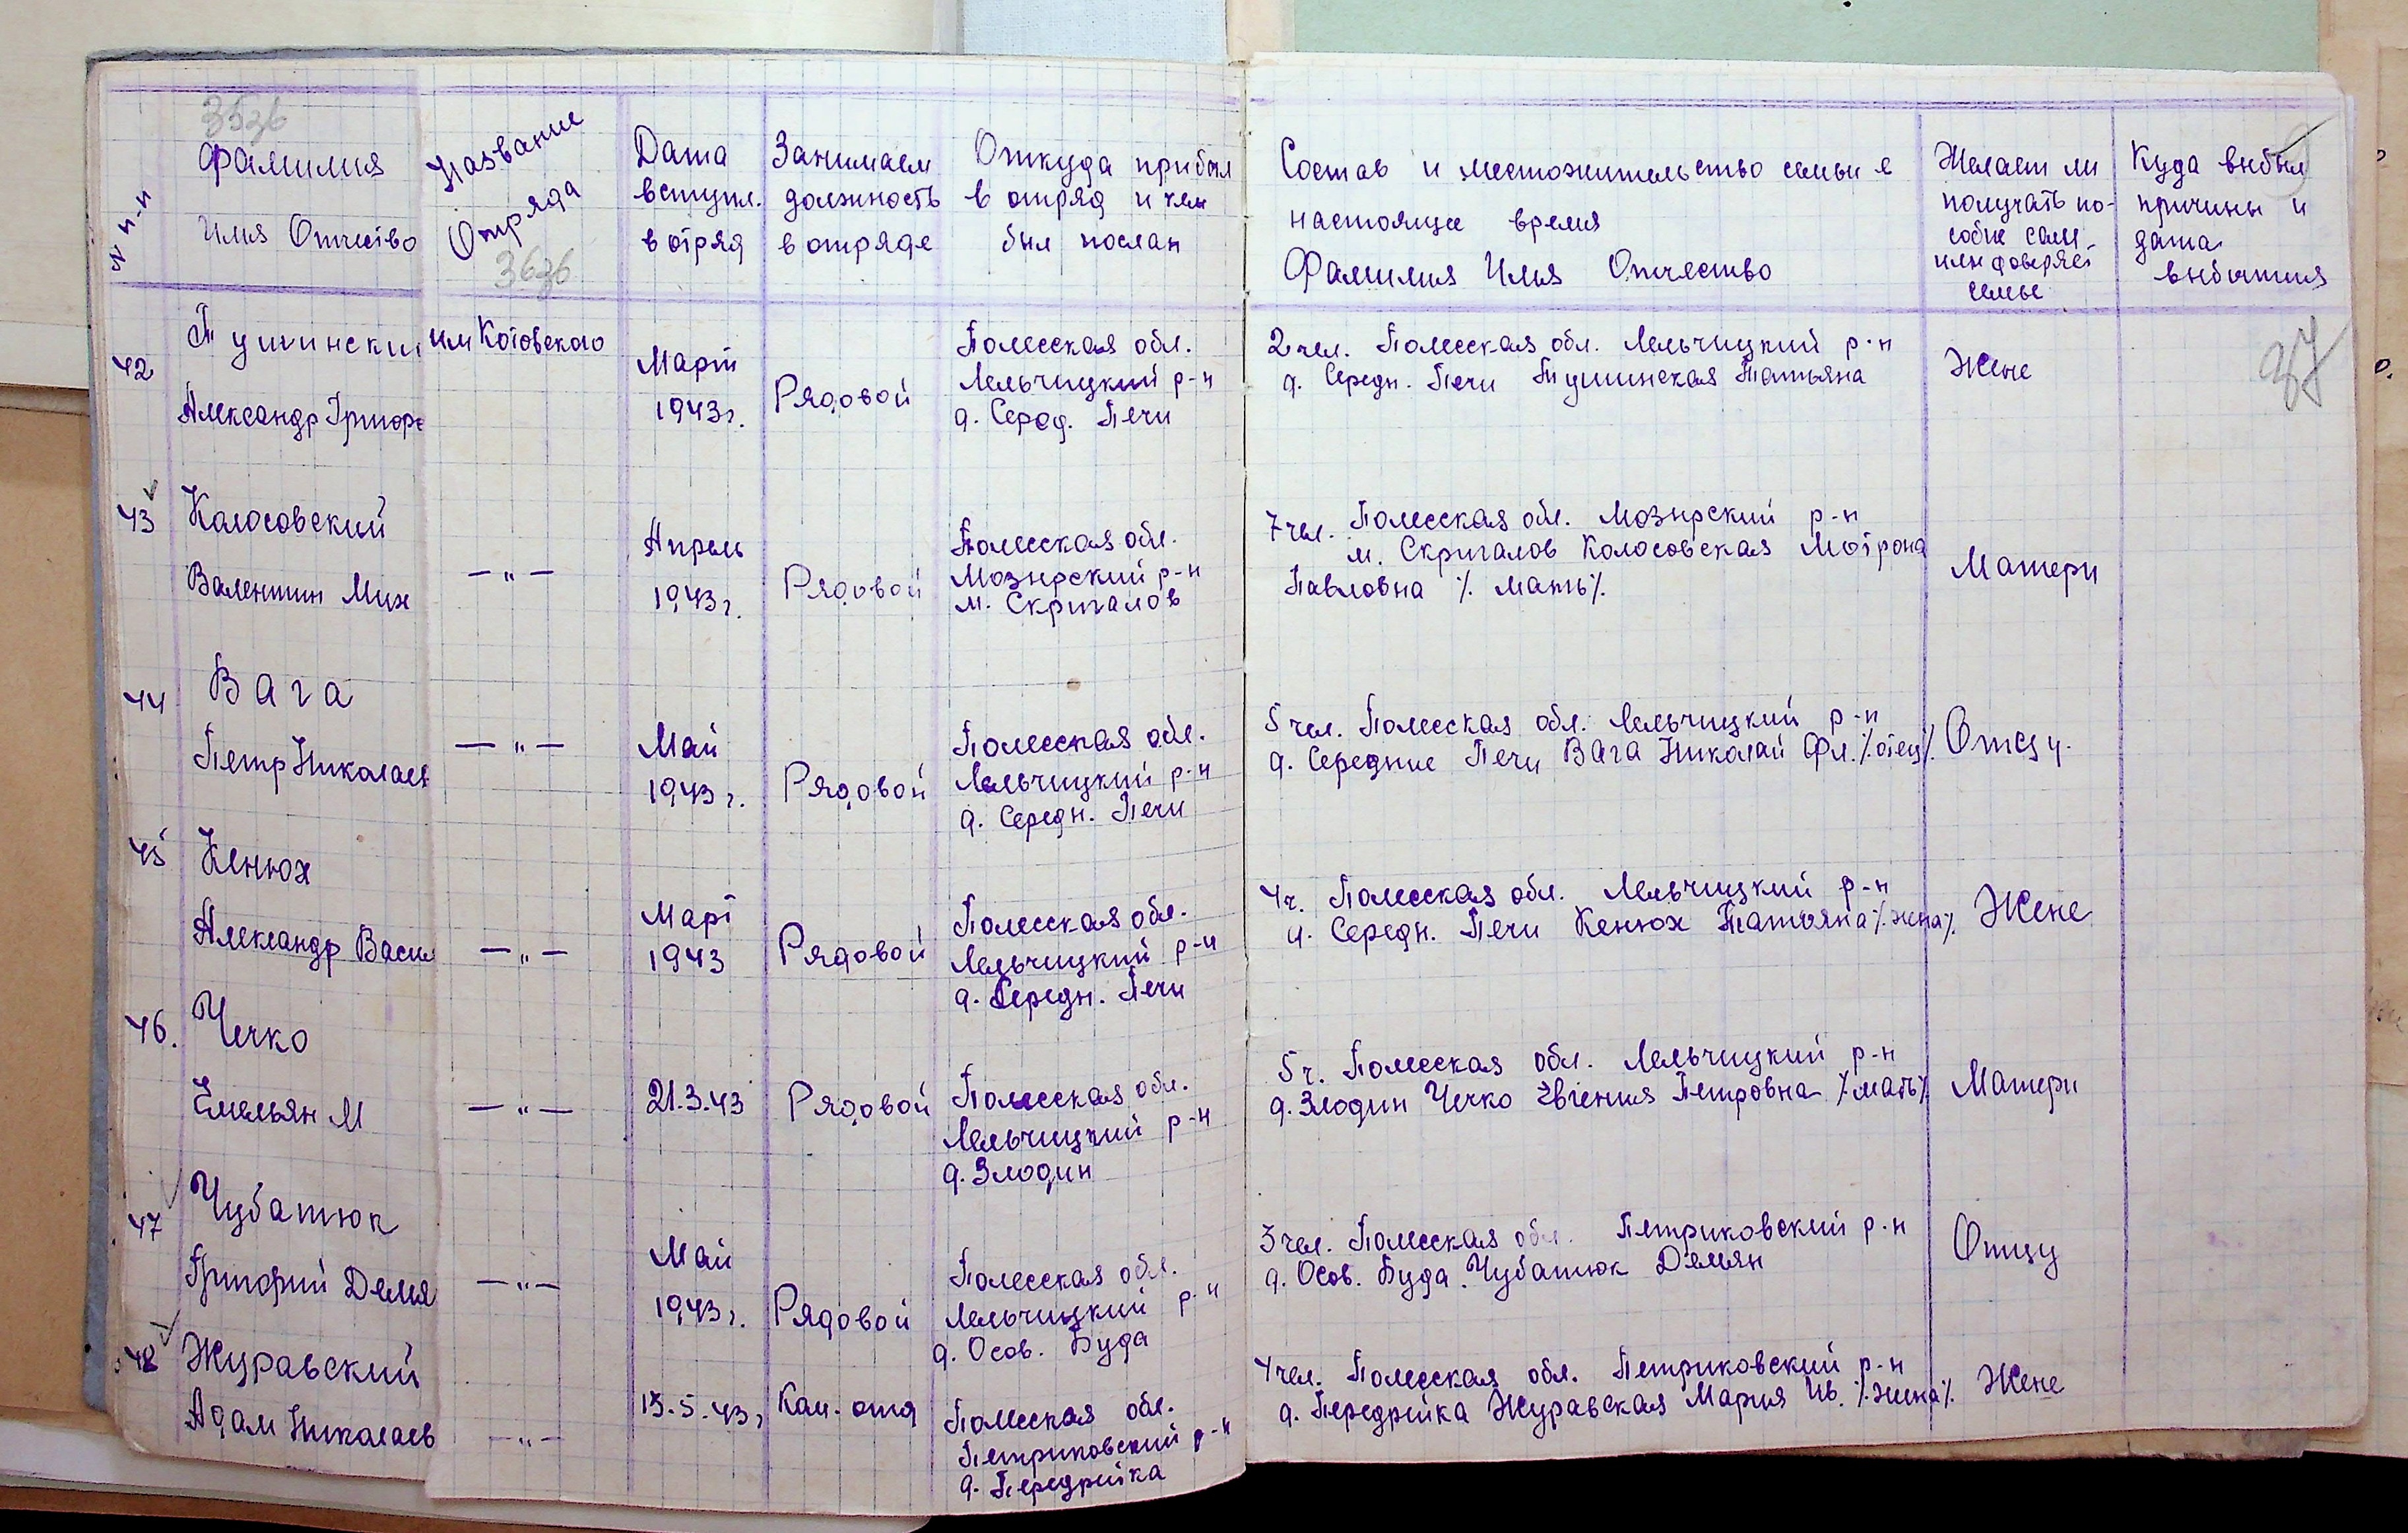 35зб
№ п-п
Фамилия
Имя Отчество
Название
Отряда
36зб
Дата
вступл.
в отряд
Занимаем
должность
в отряде
Откуда прибыл
в отряд и кем
был послан
Состав и местожительство семьи в
настоящее время
Фамилия Имя Отчество
Желает ли
получать по-
собие сам
или доверяет
семье
Куда выбыл
причины и
дата
выбытия
37
42
Тушински
Александр Григорь
им Котовского
Март
1943г.
Рядовой
Полесская обл.
Лельчицкий р-н
д. Серед. Печи
2 чел. Полесская обл. Лельчицкий р-н
д. Средн. Печи Тушинская Татьяна
Жене
43
Колосовский
Валентин Мих
— " —
Апрель
1943г.
Рядовой
Полесская обл.
Мозырский р-н
м. Скригалов
7 чел. Полесская обл. Мозырский р-н
м. Скригалов Колосовская Мотрона
Павловна ٪ мать٪
Матери
44
Вага
Петр Николаев
— " —
Май
1943 г.
Рядовой
Полесская обл.
Лельчицкий р-н
д. Середн. Печи
5 чел. Полесская обл. Лельчицкий р-н
д. Середние Печи Вага Николай Фл. ٪отец٪
Отцу.
45
Кенюх
Александр Васил
— " —
Март
1943
Рядовой
Полесская обл.
Лельчицкий р-н
д. Середн. Печи
4 ч. Полесская обл. Лельчицкий р-н
д. Середн. Печи Кенюх Татьяна ٪жена٪
Жене
46.
Чечко
Емельян М
— " —
21.3.43
Рядовой
Полесская обл.
Лельчицкий р-н
д. Злодин
5 ч. Полесская обл. Лельчицкий р-н
д. Злодин Чечко Евгения Петровна ٪мать٪
Матери
47
Чубатюк
Григорий Демя
— " —
Май
1943 г.
Рядовой
Полесская обл.
Лельчицкий р-н
д. Осов. Буда
3 чел. Полесская обл. Петриковский р-н
д. Осов. Буда Чубатюк Демьян
Отцу
48
Журавский
Адам Николаев
— " —
15.5.43г
Ком. отд
Полесская обл.
Петриковский р-н
д. Передрейка
4 чел. Полесская обл. Петриковский р-н
д. Передрейка Журавская Мария Ив. ٪жена٪
Жене